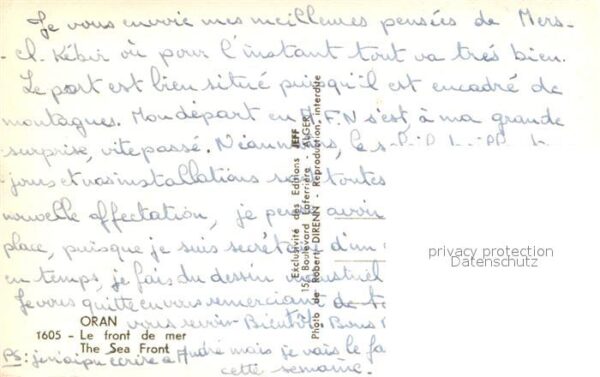 Je vous envoie mes meilleures pensées de Mers-
-el. Kébir où pour l'instant tout va très bien.
Le port est bien situé puisqu'il est encadré de
montagnes. Mon départ en A.F.N s'est à ma grande
surprise, vite passé. Néanmoins, le
jours et nos installations sont toutes
nouvelle affectation, je avoir
place, puisque je suis secrétaire d'un
en temps, je fais du dessin industriel
Je vous quitte en vous remerciant de
vous revoir Bientôt. Bons
PS: je n'ai pu écrire à André mais je vais le fa
cette semaine.
ORAN
1605 - Le front de mer
The Sea Front
Exclusivité des Editions JEFF
15, Boulevard Laferrière - ALGER
Photo de Robert DIRENN - Reproduction interdite
privacy protection
Datenschutz